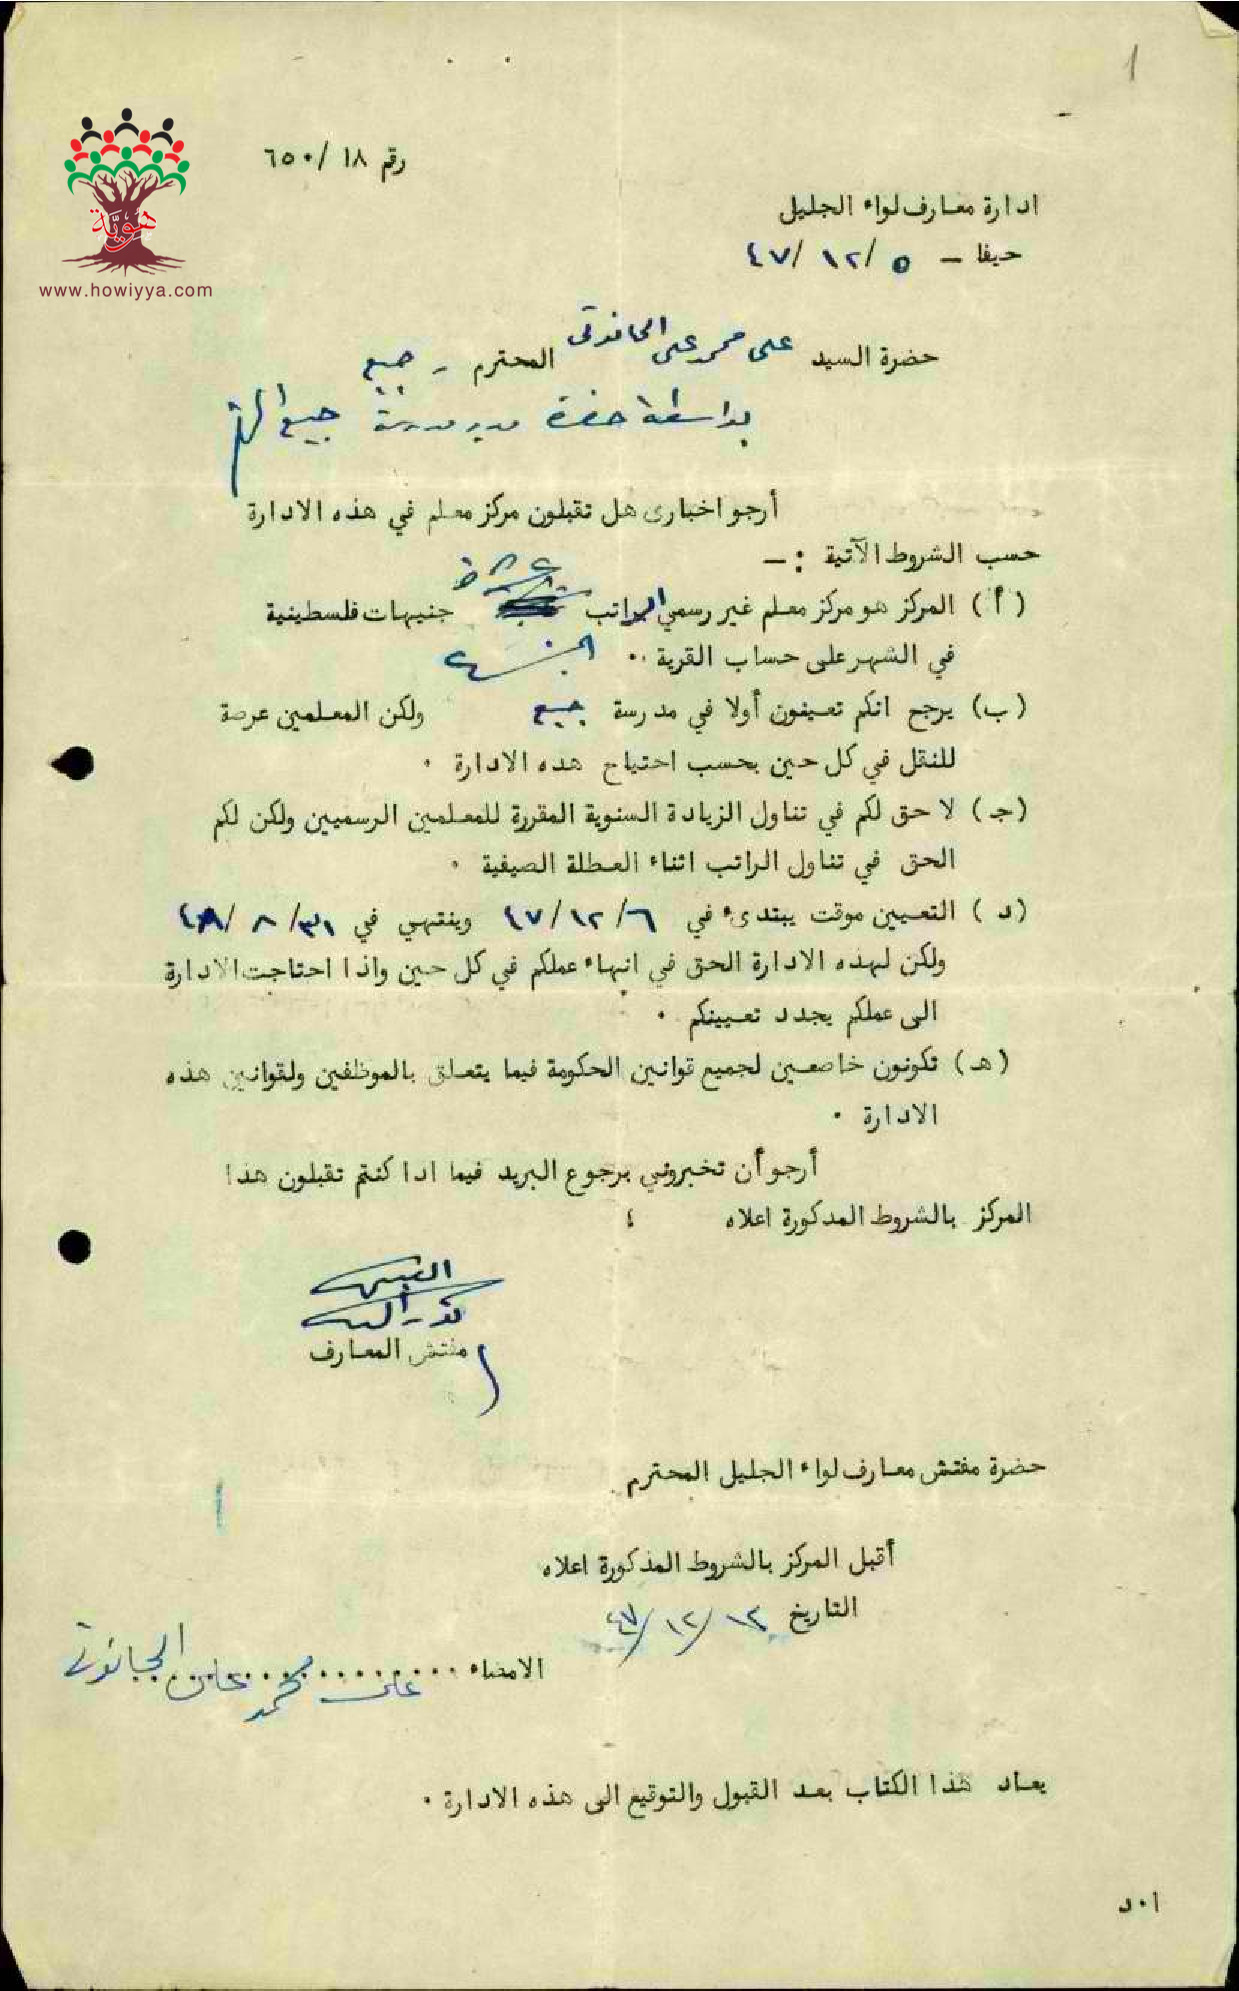 1
رقم ١٨ /٦٥٠
هويّة
www.howiyya.com
ادارة معارف لواء الجليل
حيفا – ٥ /١٢ /٤٧
حضرة السيد علي محمد علي المحترم - جبع
بواسطة حضرة مدير مدرسة جبع
أرجو اخبارى هل تقبلون مركز معلم في هذه الادارة
حسب الشروط الآتية : –
(أ) المركز هو مركز معلم غير رسمي الراتب جنيهات فلسطينية
في الشهر على حساب القرية ٠
(ب) يرجح انكم تعينون أولا في مدرسة جبع ولكن المعلمين عرصة
للنقل في كل حين بحسب احتياج هده الادارة ٠
(جـ) لا حق لكم في تناول الزيادة السنوية المقررة للمعلمين الرسميين ولكن لكم
الحق في تناول الراتب اثناء العطلة الصيفية ٠
(د) التعيين موقت يبتدىء في ٤٧/١٢/٦ وينتهي في ٣١/ ٨ /٤٨
ولكن لهذه الادارة الحق في انهاء عملكم في كل حين واذا احتاجت الادارة
الى عملكم يجدد تعيينكم ٠
(هـ) تكونون خاصعين لجميع قوانين الحكومة فيما يتعلق بالموظفين ولقوانين هذه
الادارة ٠
أرجو أن تخبروني برجوع البريد فيما ادا كنتم تقبلون هذا
المركز بالشروط المدكورة اعلاه ؛
مفتش المعارف
حضرة مفتش معارف لواء الجليل المحترم
أقبل المركز بالشروط المذكورة اعلاه
التاريخ ١٢/ ١٢/ ٤٧
الامضاء .......... علي محمد علي
يعاد هذا الكتاب بعد القبول والتوقيع الى هذه الادارة ٠
ا٠د